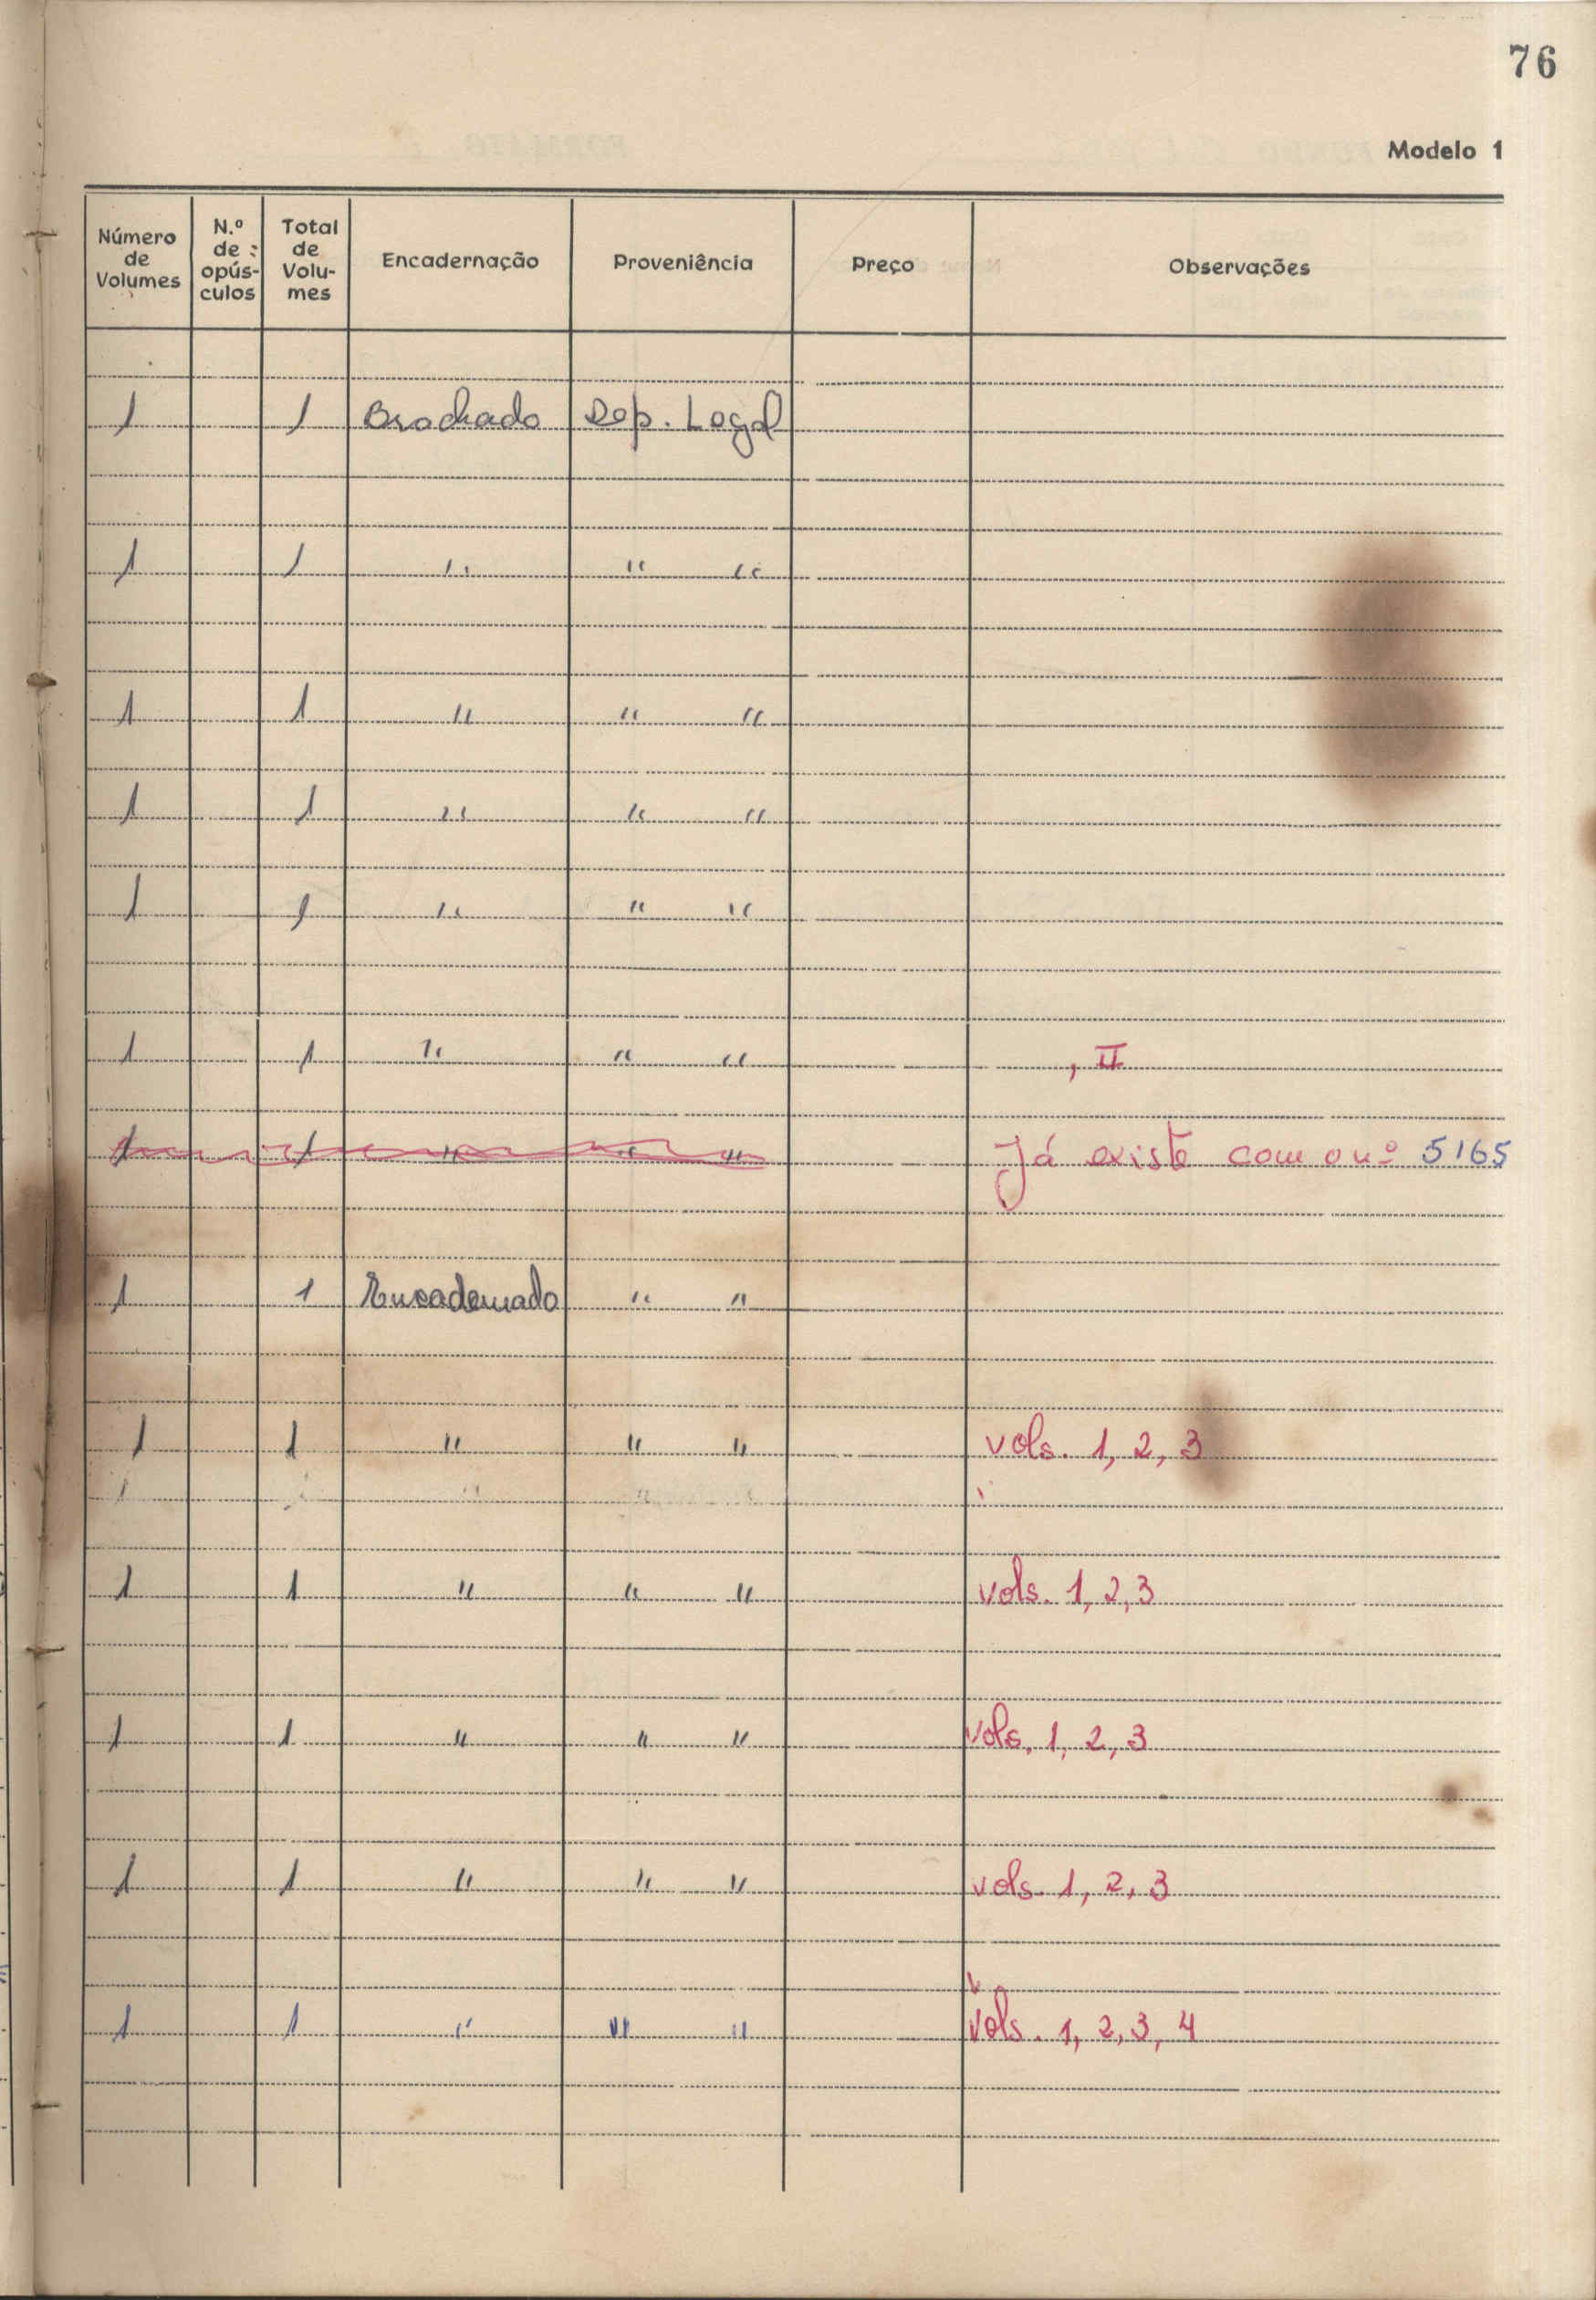 76
Modelo 1
Número de Volumes N.º de opús-culos Total de Volu-mes Encadernação Proveniência Preço Observações
1 1 Brochado Dep. Legal
1 1 " " "
1 1 " " "
1 1 " " "
1 1 " " "
1 1 " " " , II
1 1 " " " Já existe com o nº 5165
1 1 Encadernado " "
1 1 " " " vols. 1, 2, 3
1 1 " " " vols. 1, 2, 3
1 1 " " " vols. 1, 2, 3
1 1 " " " vols. 1, 2, 3
1 1 " " " vols. 1, 2, 3, 4